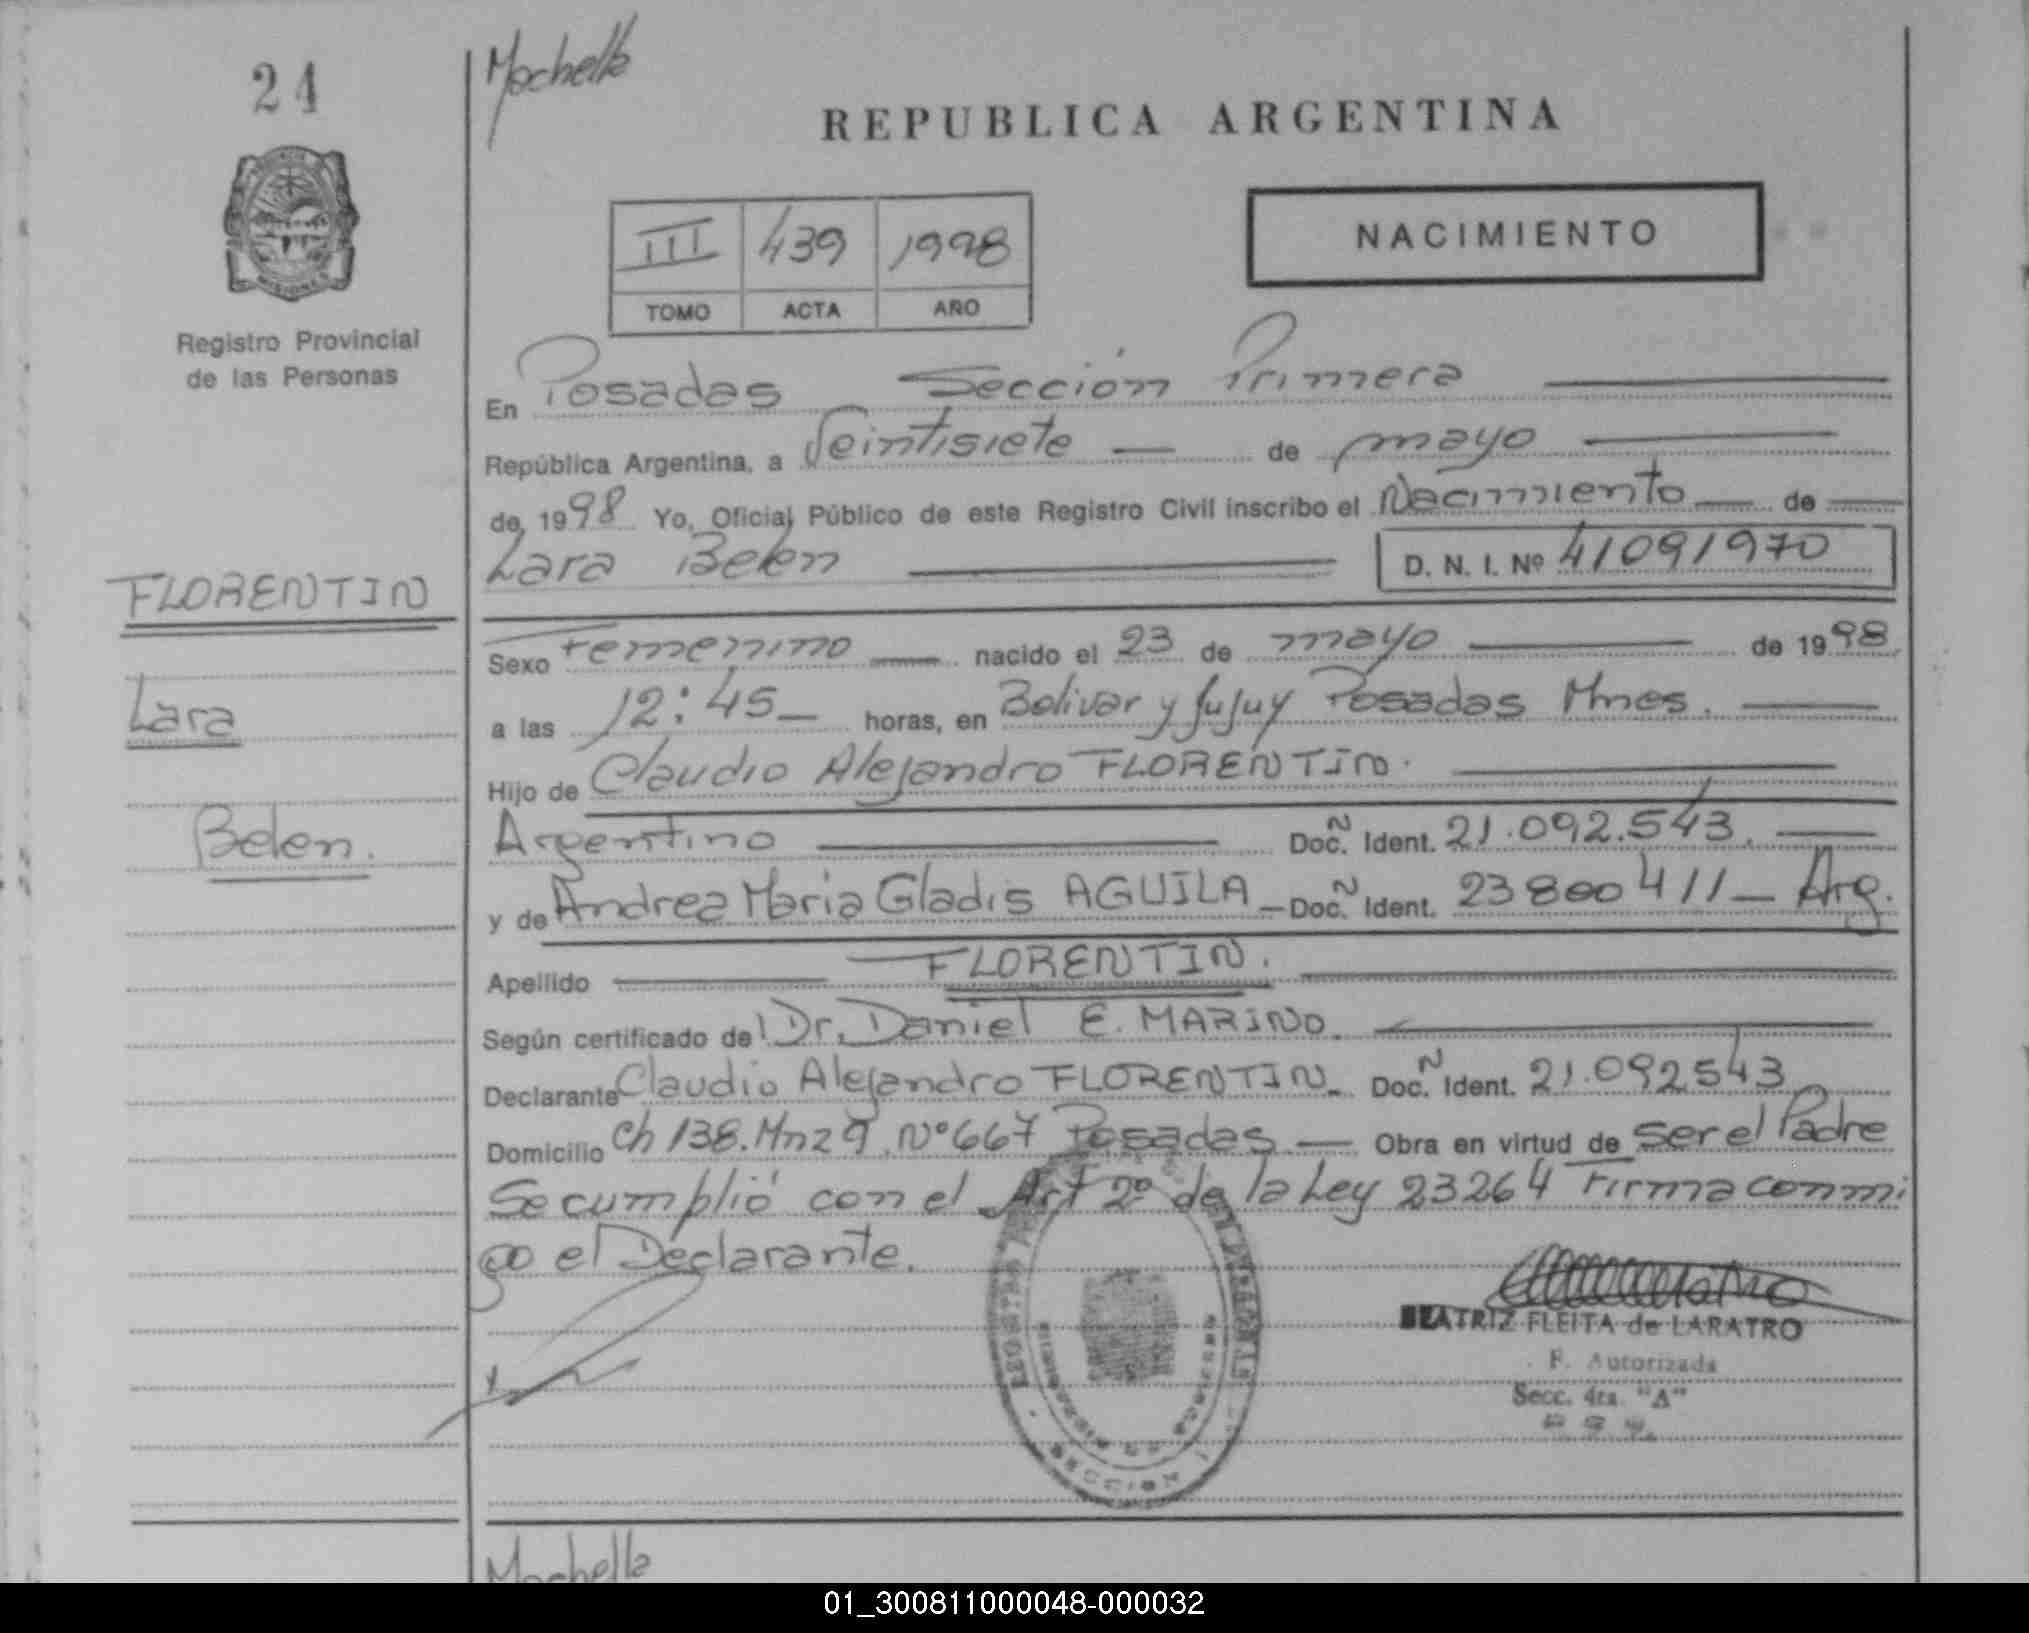 24
Mochello
REPUBLICA ARGENTINA
NACIMIENTO
III 439 1998
TOMO ACTA AÑO
MISIONES
Registro Provincial
de las Personas
En Posadas Sección Primera
República Argentina, a Veintisiete de mayo
de 1998 Yo, Oficial Público de este Registro Civil inscribo el Nacimiento de
Lara Belen
D. N. I. Nº 41091970
FLORENTIN
Lara
Belen.
Sexo Femenino nacido el 23 de mayo de 1998
a las 12:45 horas, en Bolivar y Jujuy Posadas Mnes.
Hijo de Claudio Alejandro FLORENTIN.
Argentino Doc. Ñ Ident. 21.092.543.
y de Andrea Maria Gladis AGUILA - Doc. Ñ Ident. 23800411 - Arg.
Apellido FLORENTIN.
Según certificado de Dr. Daniel E. MARINO.
Declarante Claudio Alejandro FLORENTIN. Doc. Ñ Ident. 21.092543
Domicilio Ch 138. Mnz 9. Nº 667 Posadas Obra en virtud de ser el Padre
Se cumplió con el Art 2º de la Ley 23264 Firma conmi
go el Declarante.
BEATRIZ FLEITA de LARATRO
F. Autorizada
Secc. 4ta. "A"
SECCION
01_300811000048-000032